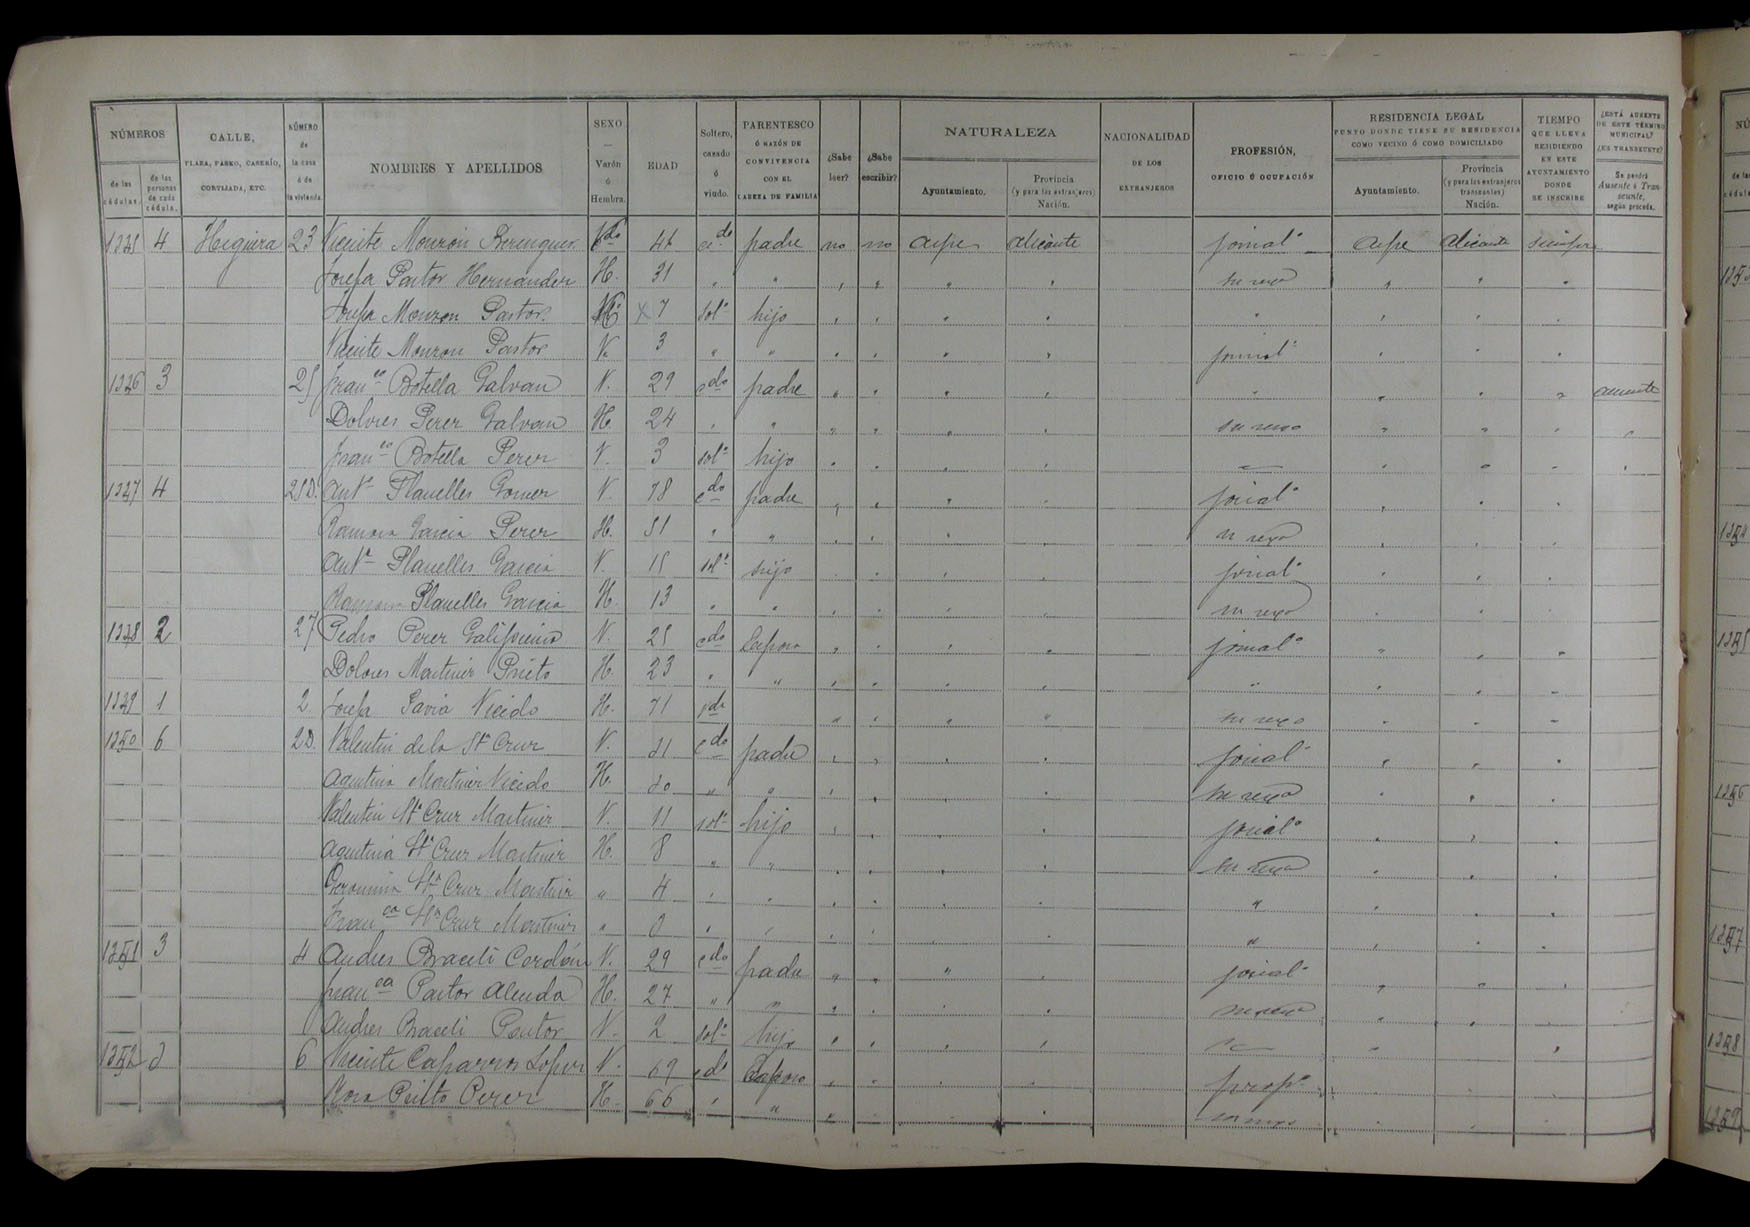 NÚMEROS
de las cédulas.
de las personas de cada cédula.
CALLE, PLAZA, PASEO, CASERÍO, CORTIJADA, ETC.
NÚMERO de la casa ó de la vivienda.
NOMBRES Y APELLIDOS
SEXO — Varón ó Hembra.
EDAD
Soltero, casado ó viudo.
PARENTESCO Ó RAZÓN DE CONVIVENCIA CON EL CABEZA DE FAMILIA
¿Sabe leer?
¿Sabe escribir?
NATURALEZA
Ayuntamiento.
Provincia (y para los extranjeros) Nación.
NACIONALIDAD DE LOS EXTRANJEROS
PROFESIÓN, OFICIO Ó OCUPACIÓN
RESIDENCIA LEGAL PUNTO DONDE TIENE SU RESIDENCIA COMO VECINO Ó COMO DOMICILIADO
Ayuntamiento.
Provincia (y para los extranjeros transeuntes) Nación.
TIEMPO QUE LLEVA RESIDIENDO EN ESTE AYUNTAMIENTO DONDE SE INSCRIBE
¿ESTÁ AUSENTE DE ESTE TÉRMINO MUNICIPAL? ¿ES TRANSEUNTE?
Se pondrá Ausente ó Transeunte, según proceda.
4 Higuera 23 Vicente Monzón Berenguer 46 cdo padre no no Aspe Alicante jornalo Aspe Alicante siempre
Josefa Pastor Hernandez H. 31 " " " " " " su sexo " " "
Josefa Monzon Pastor H. 7 solo hijo " " " " " " " "
Vicente Monzon Pastor V. 3 " " " " " " jornalo " " "
3 25 Franco Botella Galvan V. 29 cdo padre " " " " " " " " ausente
Dolores Perez Galvan H. 24 " " " " " " su sexo " " " "
Franco Botella Perez V. 3 solo hijo " " " " " " " "
4 25D. Anto Planelles Gomez V. 78 cdo padre " " " " jornalo " " "
Ramona Garcia Perez H. 51 " " " " " " su sexo " " "
Anto Planelles Garcia V. 15 solo hijo " " " " jornalo " " "
Ramona Planelles Garcia H. 13 " " " " " " su sexo " " "
2 27 Pedro Perez V. 25 cdo Esposo " " " " jornalo " " "
Dolores Martinez Prieto H. 23 " " " " " " " " " "
1 2 Josefa Pavia Vicedo H. 71 vda " " " " su sexo " " "
6 2D. Valentin de la Sta Cruz V. 31 cdo padre " " " " jornalo " " "
Agustina Martinez Vicedo H. 30 " " " " " " su sexo " " "
Valentin Sta Cruz Martinez V. 11 solo hijo " " " " jornalo " " "
Agustina Sta Cruz Martinez H. 8 " " " " " " su sexo " " "
Geronima Sta Cruz Martinez " 4 " " " " " " " " " "
Franca Sta Cruz Martinez " 0 " " " " " " " " " "
3 4 Andres Braceli V. 29 cdo padre " " " " jornalo " " "
Franca Pastor Alenda H. 27 " " " " " " su sexo " " "
Andres Braceli Pastor V. 2 solo hijo " " " " " "
6 Vicente Caparros Lopez V. 69 cdo Esposo " " " " propo " " "
Perez H. 66 " " " " " " su sexo " " "